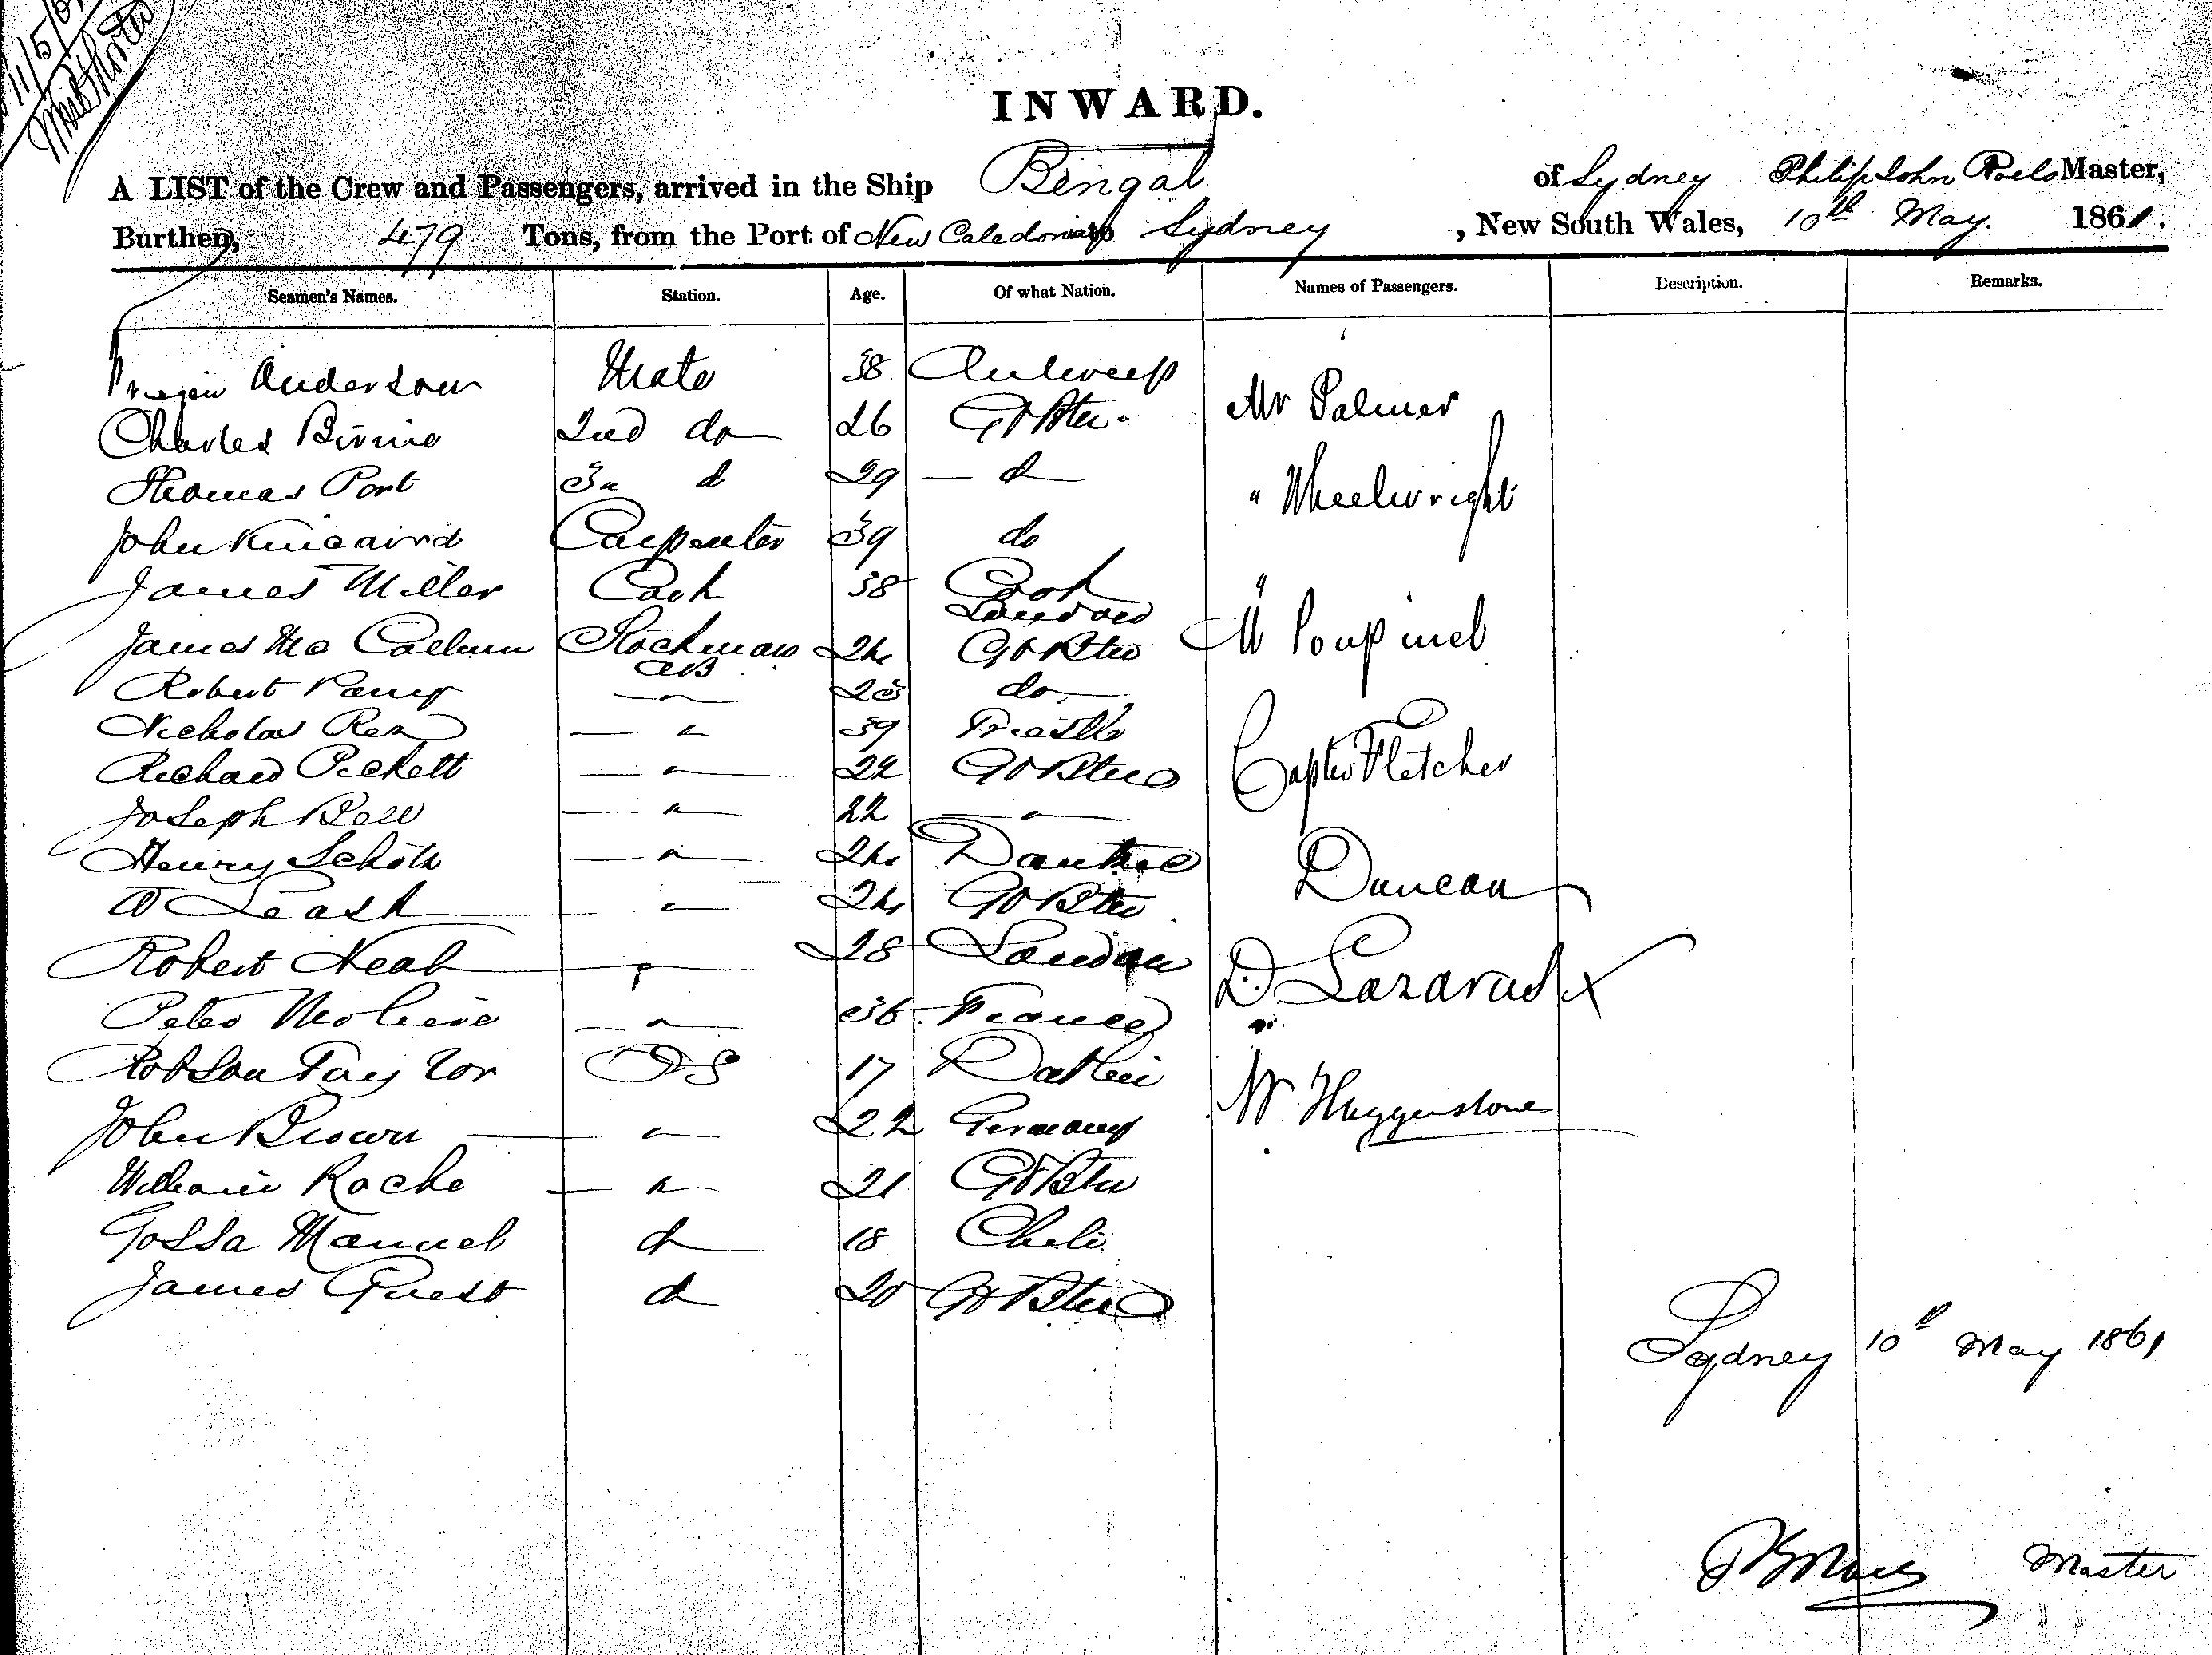 11/5/61
INWARD.
A LIST of the Crew and Passengers, arrived in the Ship Bengal of Sydney Philip John Master,
Burthen, 479 Tons, from the Port of New Caledonia to Sydney, New South Wales, 10th May. 1861.
Seamen's Names. Station. Age. Of what Nation. Names of Passengers. Description. Remarks.
Anderson Mate 38 Antwerp Mr Palmer
Charles Birnie 2nd do 26 Gt Btn.
Thomas Port 3 d 29 — d — " Wheelwright
John Kincaird Carpenter 39 do
James Miller Cook 38 Cook London
James Mc Callum Stockman AB 24 Gt Btn M Poupinel
Robert — " — 23 do
Nicholas — " 39 Capt Fletcher
Richard Pickett — " — 22 Gt Btn
Joseph Bell — " — 22 — " —
Henry Scholl — " — 24 Dantzic Duncan
Leash " 24 Gt Btn
Robert Neal " 28 London D Lazarus X
Peter — " — 36 France
Robson Taylor OS 17 Dublin W Huggerstone
John Brown — " — 22 Germany
William Roche — " — 21 Gt Btn
Manuel d 18 Chili
James Guest d 20 Gt Btn
Sydney 10th May 1861
Master